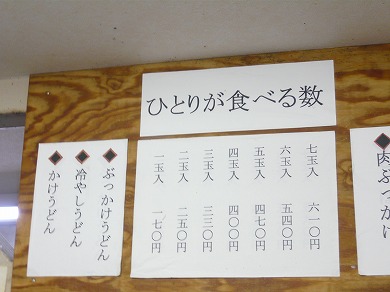 ひとりが食べる数
肉ぶっかけ
七玉入 六一〇円
六玉入 五四〇円
五玉入 四七〇円
四玉入 四〇〇円
三玉入 三三〇円
二玉入 二五〇円
一玉入 一七〇円
◆ぶっかけうどん
◆冷やしうどん
◆かけうどん